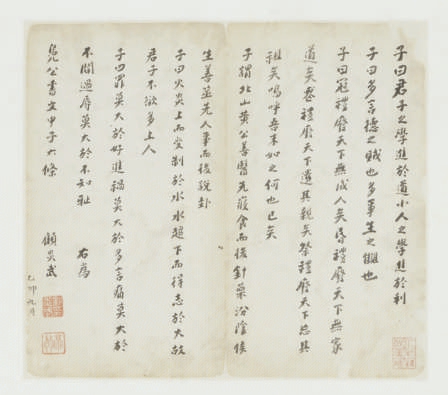 子曰君子之學進於道小人之學進於利
子曰多言德之賊也多事生之讎也
子曰冠禮廢天下無成人矣昏禮廢天下無家
道矣喪禮廢天下遺其親矣祭禮廢天下忘其
祖矣嗚呼吾末如之何也已矣
子謂北山黃公善醫先寢食而後針藥汾陰侯
生善筮先人事而後說卦
子曰火炎上而受制於水水趨下而得志於火故
君子不欲多上人
子曰罪莫大於好進禍莫大於多言痛莫大於
不聞過辱莫大於不知恥 右為
公書文中子六條 顧炎武
己卯九月